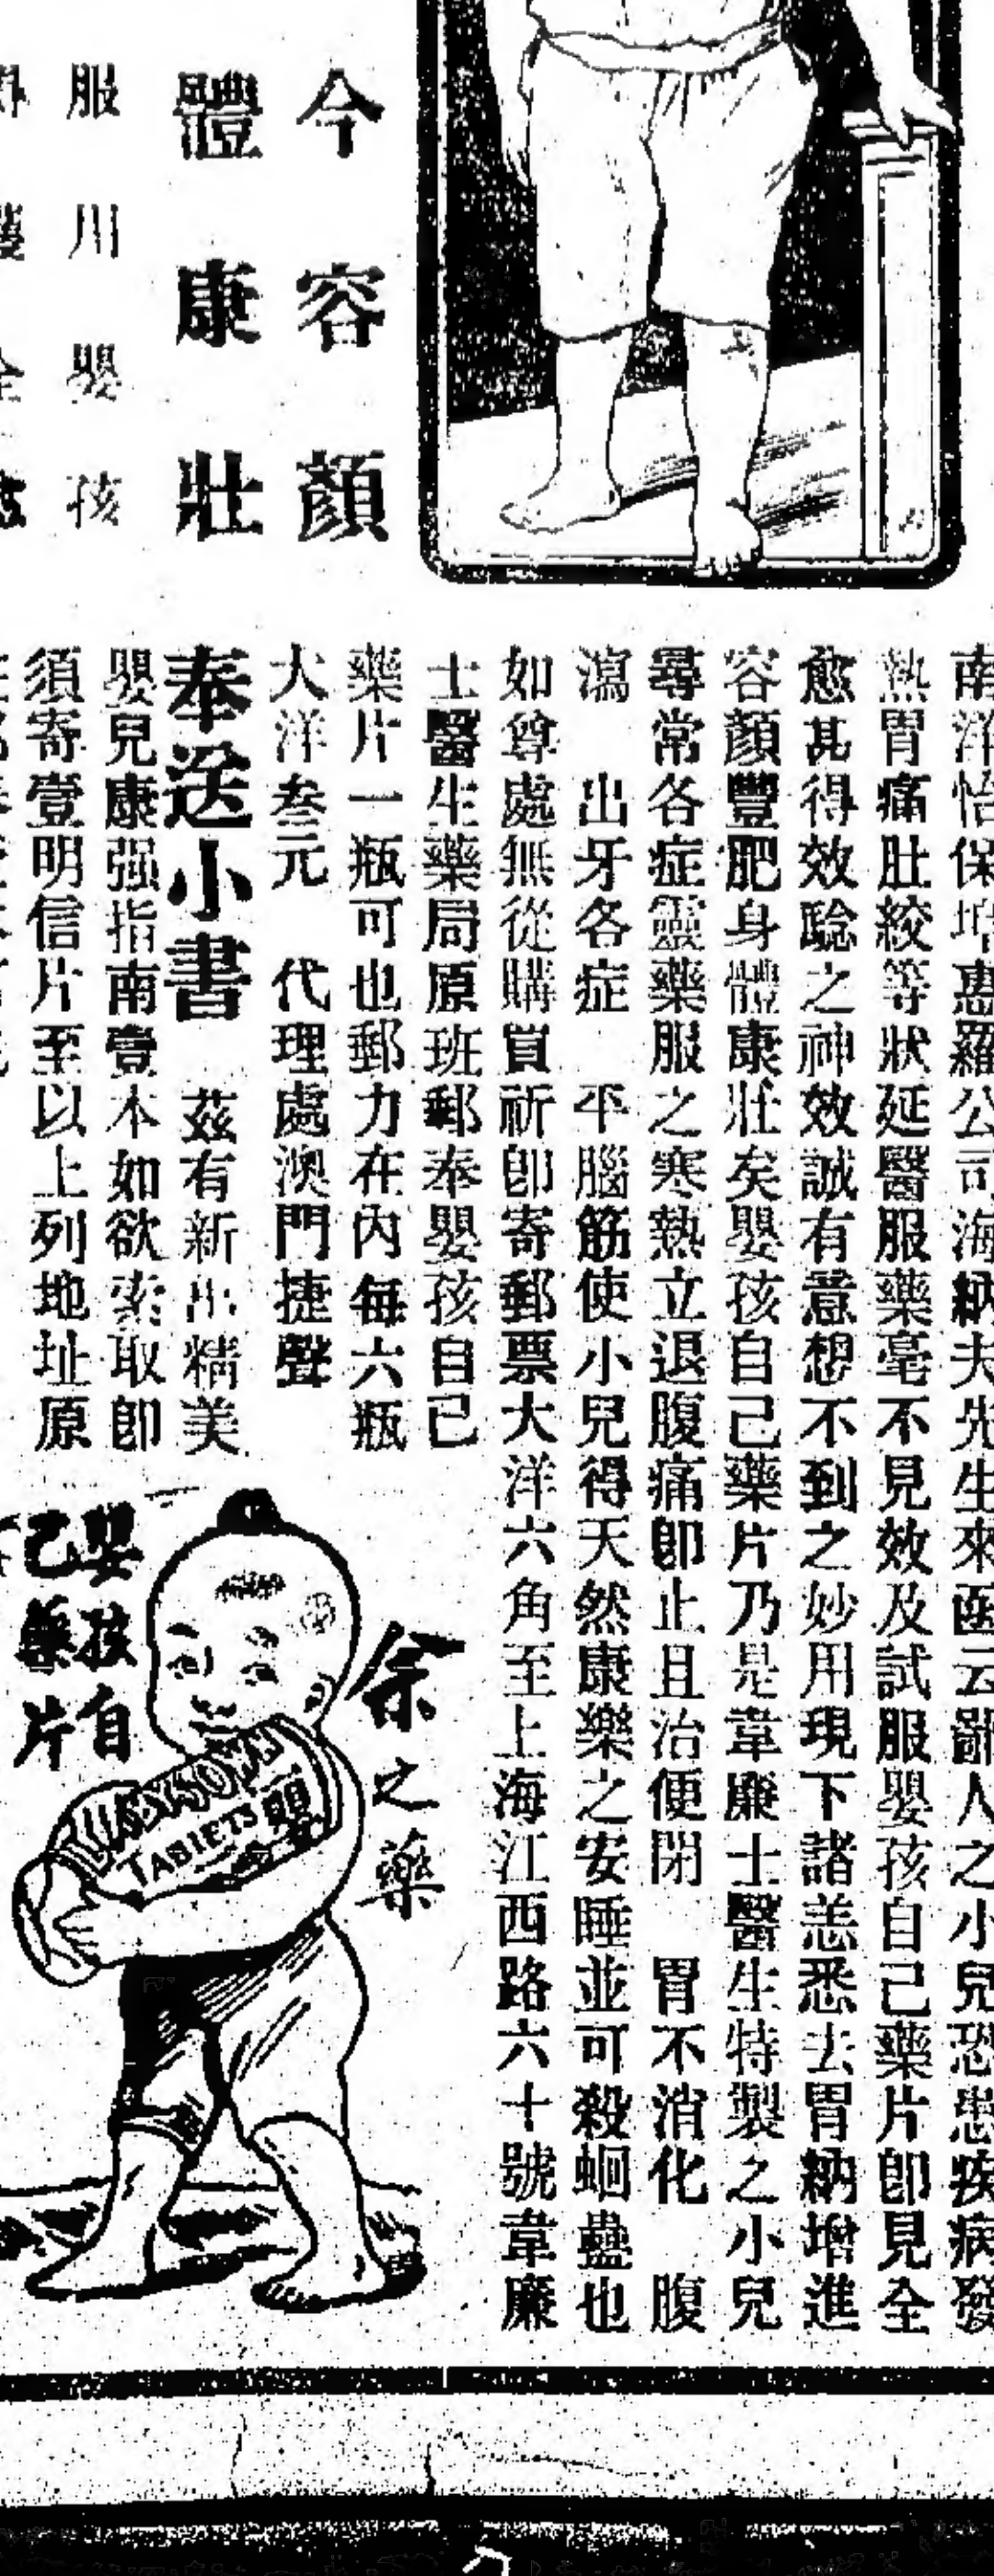 今容顏
體康壯
服川嬰孩
南洋怡保埠惠羅公司海納夫先生來函云鄙人之小兒恐患疾病發
熱胃痛肚絞等狀延醫服藥毫不見效及試服嬰孩自己藥片卽見全
愈甚得效驗之神效誠有意想不到之妙用現下諸恙悉去胃納增進
容顏豐肥身體康壯矣嬰孩自己藥片乃是韋廉士醫生特製之小兒
尋常各症靈藥服之寒熱立退腹痛卽止且治便閉 胃不消化 腹
瀉 出牙各症 平腦筋使小兒得天然康樂之安睡並可殺蛔蠱也
如尊處無從購買祈卽寄郵票大洋六角至上海江西路六十號韋廉
士醫生藥局原班郵奉嬰孩自己
藥片一瓶可也郵力在內每六瓶
大洋叁元 代理處澳門捷聲
奉送小書 茲有新出精美
嬰兒康强指南壹本如欲索取卽
須寄壹明信片至以上列地址原
余之藥
嬰孩自
己藥片
TABLETS